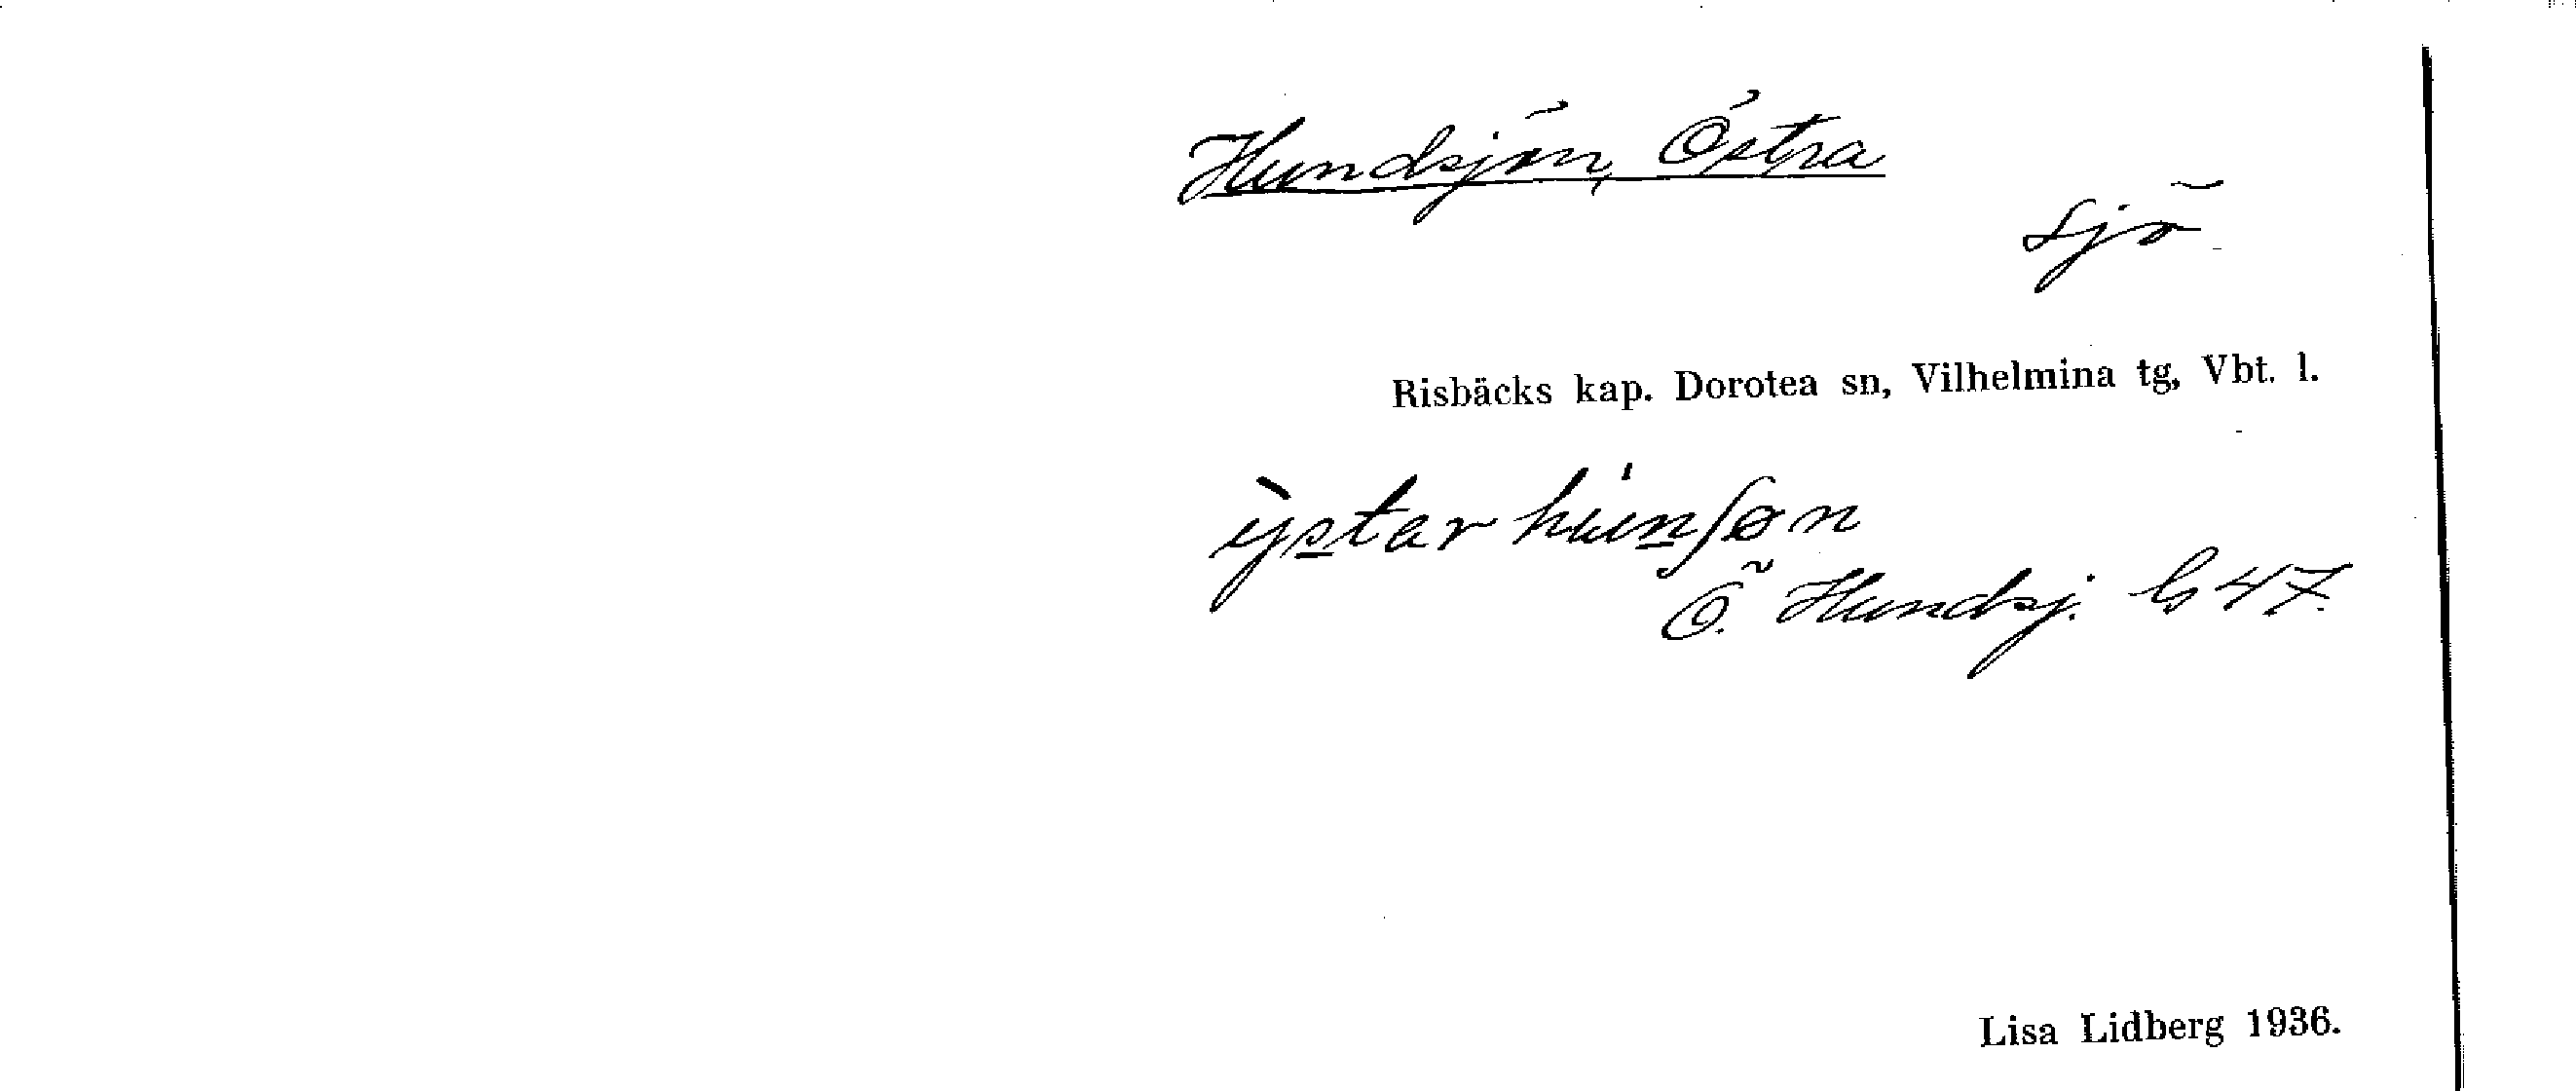 Hundsjön, Östra
sjö
Risbäcks kap. Dorotea sn, Vilhelmina tg, Vbt. l.
Ö. Hundsj. b 47.
Lisa Lidberg 1936.